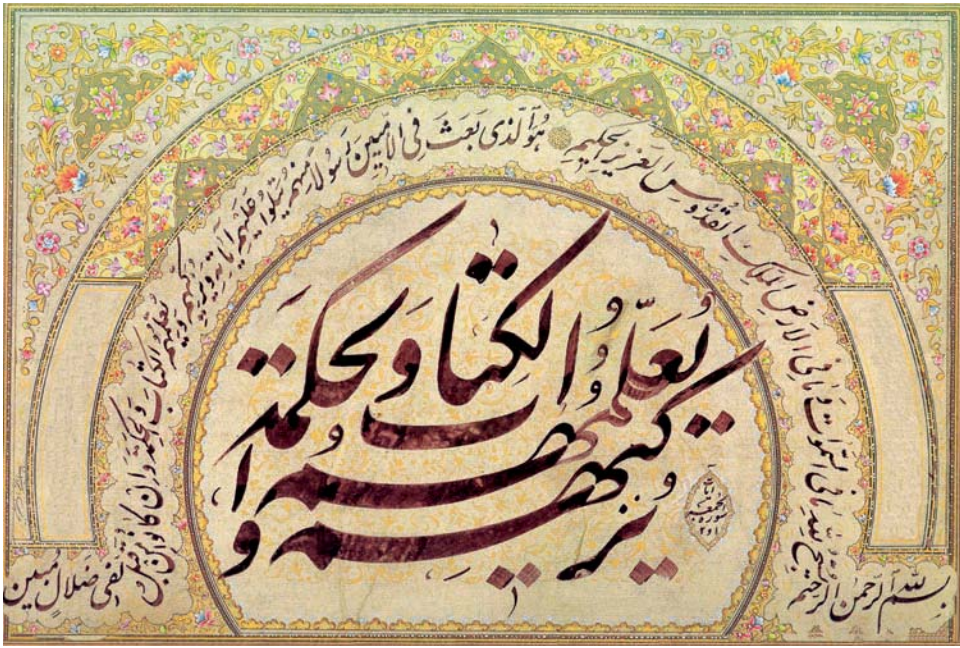 بسم الله الرحمن الرحيم
يسبح لله ما فى السموات و ما فى الارض الملك القدوس العزيز الحكيم هو الذى بعث فى الاميين رسولا منهم يتلوا عليهم آياته و يزكيهم و يعلمهم الكتاب و الحكمة و ان كانوا من قبل
لفى ضلال مبين
و يزكيهم
و يعلمهم الكتاب و الحكمة